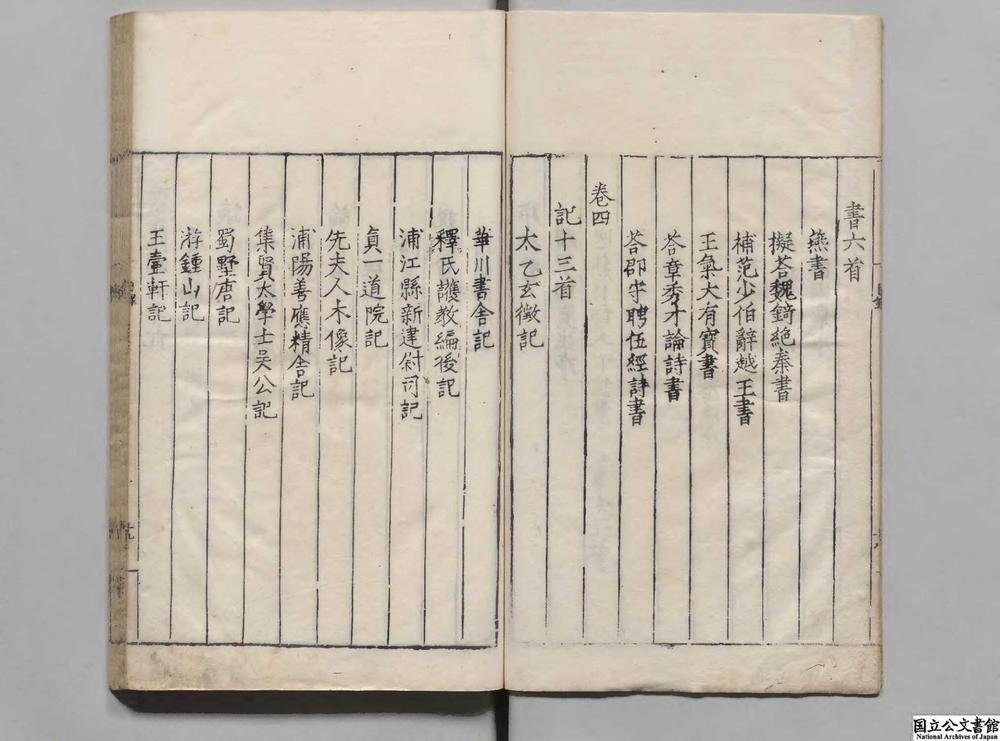 書六首
燕書
擬荅魏錡絶秦書
補范少伯辭越王書
王氣大有寳書
荅章秀才論詩書
荅郡守聘伍經詩書
卷四
記十三首
太乙玄徵記
華川書舍記
釋氏護教編後記
浦江縣新建尉司記
貞一道院記
先夫人木像記
浦陽善應精舍記
集賢大學士吴公記
蜀墅唐記
游鍾山記
王臺軒記
国立公文書館
National Archives of Japan